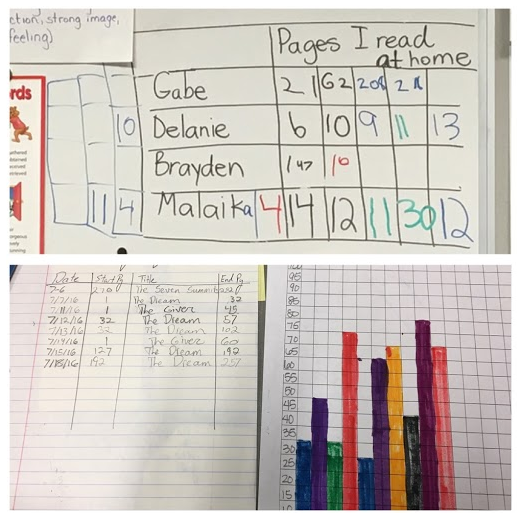 ction, strong image,
feeling)
rds
Pages I read
at home
Gabe 21 62 208 211
10 Delanie 6 10 9 11 13
Brayden 147 10
11 4 Malaika 4 14 12 11 30 12
Date Start Pg Title End Pg
7-6 270 The Seven Summits
7/7/16 1 The Dream 32
7/11/16 1 The Giver 45
7/12/16 32 The Dream 57
7/13/16 32 The Dream 102
7/14/16 1 The Giver 60
7/15/16 127 The Dream 192
7/18/16 192 The Dream 257
100
95
90
85
80
75
70
65
60
55
50
45
40
35
30
25
20
15
10